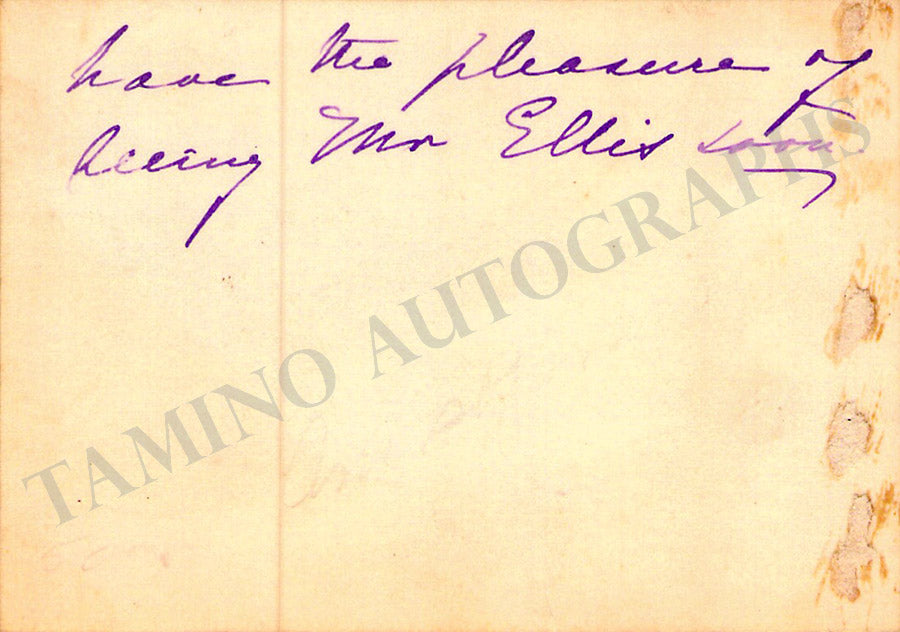 have the pleasure of
seeing Mr Ellis soon
TAMINO AUTOGRAPHS